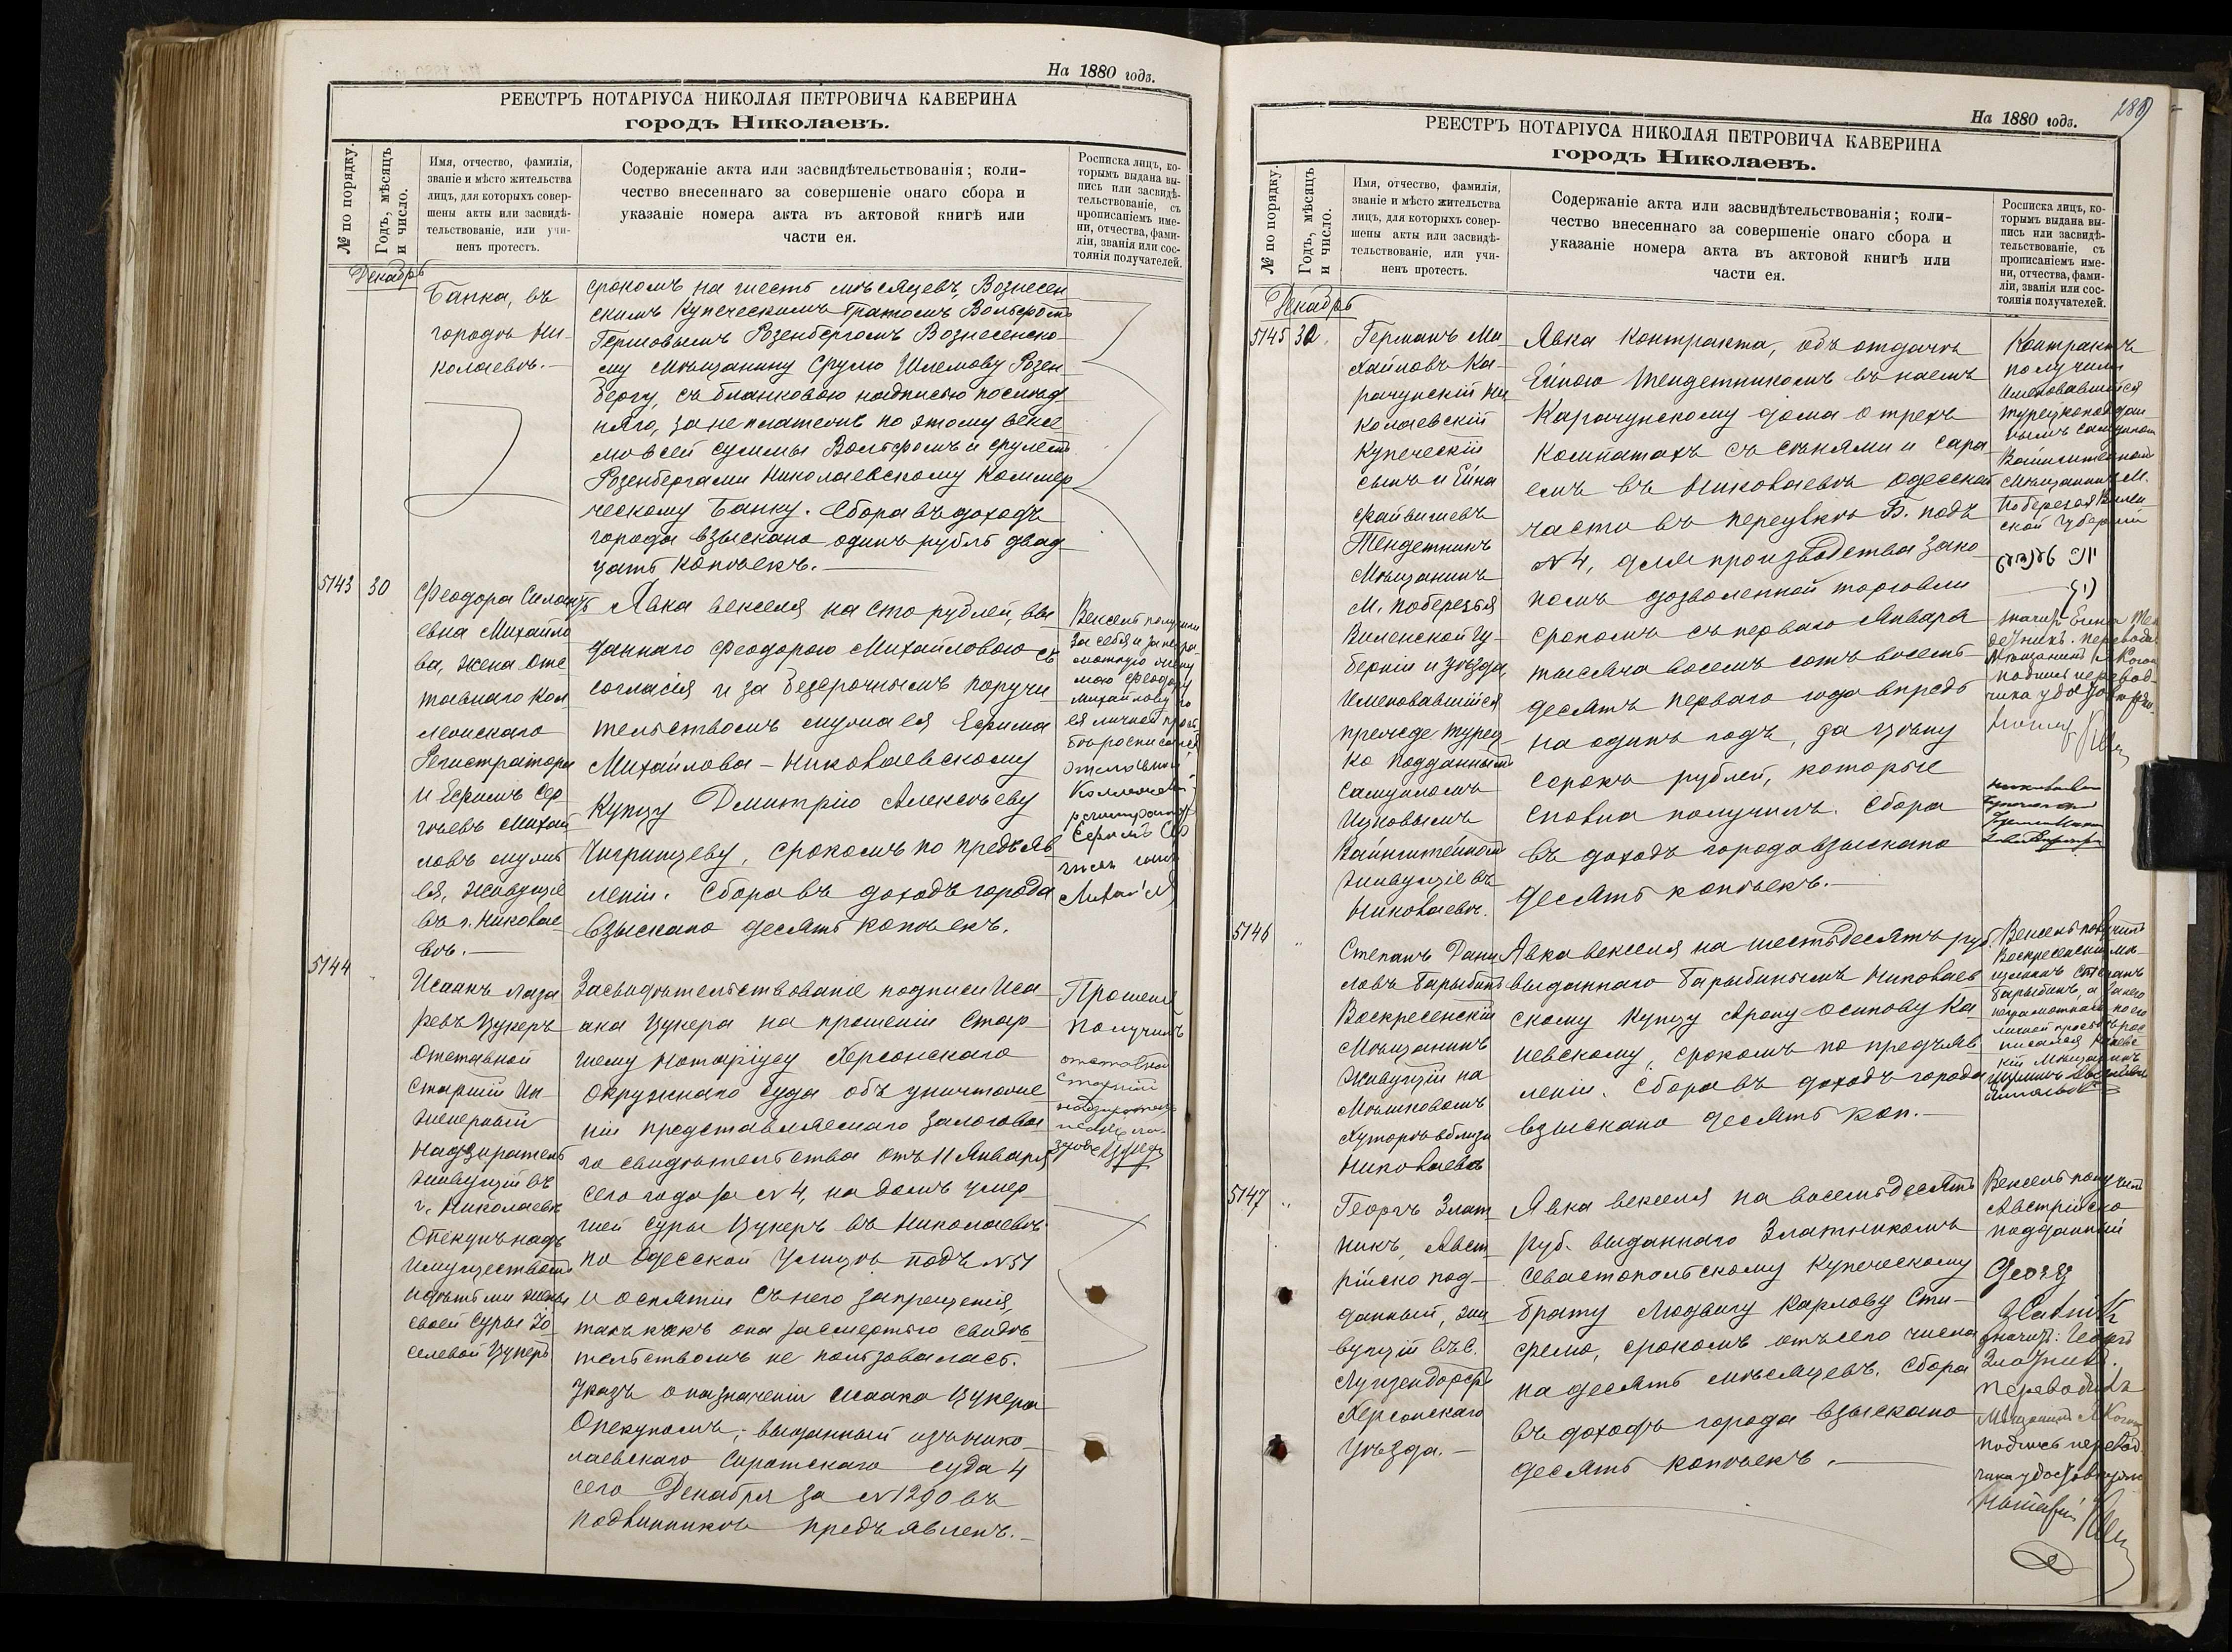 На 1880 годъ.
РЕЕСТРЪ НОТАРІУСА НИКОЛАЯ ПЕТРОВИЧА КАВЕРИНА
городъ Николаевъ.
№ по порядку.
Годъ, мѣсяцъ
и число.
Имя, отчество, фамилія,
званіе и мѣсто жительства
лицъ, для которыхъ совер-
шены акты или засвидѣ-
тельствованіе, или учи-
ненъ протестъ.
Содержаніе акта или засвидѣтельствованія; коли-
чество внесеннаго за совершеніе онаго сбора и
указаніе номера акта въ актовой книгѣ или
части ея.
Росписка лицъ, ко-
торымъ выдана вы-
пись или засвидѣ-
тельствованіе, съ
прописаніемъ име-
ни, отчества, фами-
ліи, званія или сос-
тоянія получателей.
Декабрь
Банка, въ
городѣ Ни-
колаевѣ.—
срокомъ на шесть мѣсяцевъ, Вознесен
скимъ Купеческимъ братомъ Вольфомъ
Гершовымъ Розенбергомъ Вознесенско-
му Мѣщанину Срулю Шлемову Розен-
бергу, съ бланковою надписью послѣд
няго, за не платежъ по этому вексе
лю всей суммы Вольфомъ и Срулемъ
Розенбергами Николаевскому Коммер
ческому Банку. Сбора въ доходъ
города взыскано одинъ рубль двад
цать копѣекъ.—
5143 30
Феодора
евна Михайло
ва, жена Отс
тавнаго Кол
лежскаго
Регистратора
и Ефимъ Сер
гѣевъ Михай
ловъ мужъ
ея, живущіе
въ г. Николае
вѣ.—
Явка векселя на сто рублей, вы
даннаго Феодорою Михайловою съ
согласія и за безсрочнымъ поручи
тельствомъ мужа ея Ефима
Михайлова - Николаевскому
Купцу Дмитрію Алексѣеву
Чигринцеву, срокомъ по предъяв
леніи. Сбора въ доходъ города
взыскано десять копѣекъ.
Вексель получили
за себя и за негра
мотную жену
мою Феодору
Михайлову по
ея личной прось
бѣ росписался
отставной
Коллежскій
регистраторъ
Ефимъ Сер
гѣевъ
5144
Исаакъ Лаза
ревъ Цукеръ
Отставной
Старшій Ин
женерный
Надзиратель
живущій въ
г. Николаевѣ
Опекунъ надъ
имуществомъ
и дѣтьми жены
своей Суры Іо
селевой Цукеръ
Засвидѣтельствованіе подписи Иса-
ака Цукера на прошеніи Стар
шему Нотаріусу Херсонскаго
Окружнаго Суда объ уничтоже
ніи представляемаго залогова
го свидѣтельства отъ 11 Января
сего года за №4, на домъ умер
шей Суры Цукеръ въ Николаевѣ
по Одесской улицѣ подъ №51
и о снятіи съ него запрещенія,
такъ какъ она за смертью свидѣ
тельствомъ не пользовалась.
Указъ о назначеніи Исаака Цукера
Опекуномъ, выданный изъ Нико-
лаевскаго Сиротскаго Суда 4
сего Декабря за №1290 въ
подлинникѣ предъявленъ.—
Прошеніе
получилъ
отставной
Старшій
надзиратель
Исаакъ Ла-
заревъ Цукеръ
На 1880 годъ.
289
РЕЕСТРЪ НОТАРІУСА НИКОЛАЯ ПЕТРОВИЧА КАВЕРИНА
городъ Николаевъ.
№ по порядку.
Годъ, мѣсяцъ
и число.
Имя, отчество, фамилія,
званіе и мѣсто жительства
лицъ, для которыхъ совер-
шены акты или засвидѣ-
тельствованіе, или учи-
ненъ протестъ.
Содержаніе акта или засвидѣтельствованія; коли-
чество внесеннаго за совершеніе онаго сбора и
указаніе номера акта въ актовой книгѣ или
части ея.
Росписка лицъ, ко-
торымъ выдана вы-
пись или засвидѣ-
тельствованіе, съ
прописаніемъ име-
ни, отчества, фами-
ліи, званія или сос-
тоянія получателей.
Декабрь
5145 30.
Германъ Ми
хайловъ Ка-
рачунскій Ни
колаевскій
Купеческій
сынъ и Ейна
Файвишевъ
Тендетникъ
Мѣщанинъ
М. Поберезья
Виленской Гу-
берніи и уѣзда,
именовавшійся
прежде Турец
ко подданнымъ
Самуиломъ
Ицковымъ
Вайнштейномъ
живущіе въ
Николаевѣ.
Явка Контракта, объ отдачѣ
Ейною Тендетникомъ въ наемъ
Карачунскому дома о трехъ
комнатахъ съ сѣнями и сара
емъ въ Николаевѣ Одесской
части въ переулкѣ Б. подъ
№4, для производства зако
номъ дозволенной торговли
срокомъ съ перваго Января
тысяча восемь сотъ восемь
десятъ перваго года впредь
на одинъ годъ, за цѣну
сорокъ рублей, которые
сполна получилъ. Сбора
въ доходъ города взыскано
десять копѣекъ.—
Контрактъ
получилъ
именовавшійся
турецкоподдан
нымъ Самуиломъ
Вайнштейномъ
Мѣщанинъ М.
Поберезья Вилен
ской Губерніи
значитъ Ейна Тен
детникъ. Переводъ
Мѣщанинъ Коганъ
подпись перевод-
чика удостовѣряю
5146 "
Степанъ Дани
ловъ Барыбинъ
Воскресенскій
Мѣщанинъ
живущій на
Мѣшковомъ
Хуторѣ вблизи
Николаева
Явка векселя на шестьдесятъ руб.
выданнаго Барыбинымъ Николаев
скому Купцу Арону Осипову Ка-
невскому, срокомъ по предъяв
леніи. Сбора въ доходъ города
взыскано десять коп.—
Вексель получилъ
Воскресенскій мѣ-
щанинъ Степанъ
Барыбинъ, а за него
неграмотнаго по его
личной просьбѣ рос
писался
кій Мѣщанинъ
5147 "
Георгъ Злат
никъ, Авст
рійско под-
данный, жи
вущій въ с.
Лунцендорфѣ
Херсонскаго
Уѣзда.—
Явка векселя на восемьдесятъ
руб. выданнаго Златникомъ
Севастопольскому Купеческому
брату Людвигу Карлову Сти-
фелю, срокомъ отъ сего числа
на десять мѣсяцевъ. Сбора
въ доходъ города взыскано
десять копѣекъ.—
Вексель получилъ
Австрійско
подданный
Georg
Zlatnik
значитъ: Георгъ
Златникъ.
Переводилъ
Мѣщанинъ Коганъ
подпись перевод
чика удостовѣряю
Нотаріусъ